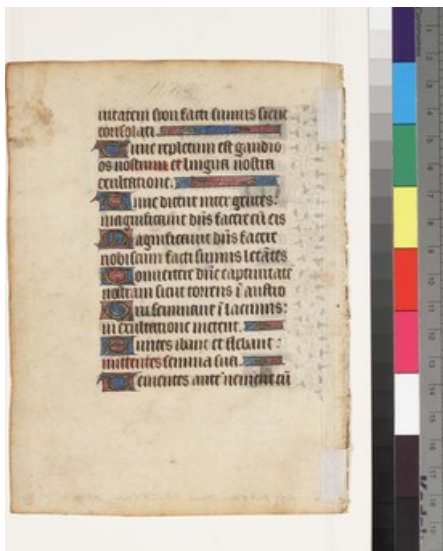 uitatem syon facti sumus sicut
consolati.
Tunc repletum est gaudio
os nostrum et lingua nostra
exultatione.
Tunc dicent inter gentes:
magnificauit dns facere cu eis
Magnificauit dns facere
nobiscum facti sumus letãtes
Conuertere dne captiuitatẽ
nostram sicut torrens ĩ austro
Qui seminant ĩ lacrimis:
in exultatione metent.
Euntes ibant et flebant:
mittentes semina sua.
Uenientes aute uenient cũ